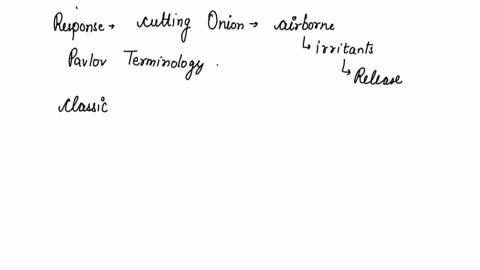 Response → cutting Onion → airborne
↳ irritants
Pavlov Terminology .
↳ Release
classic